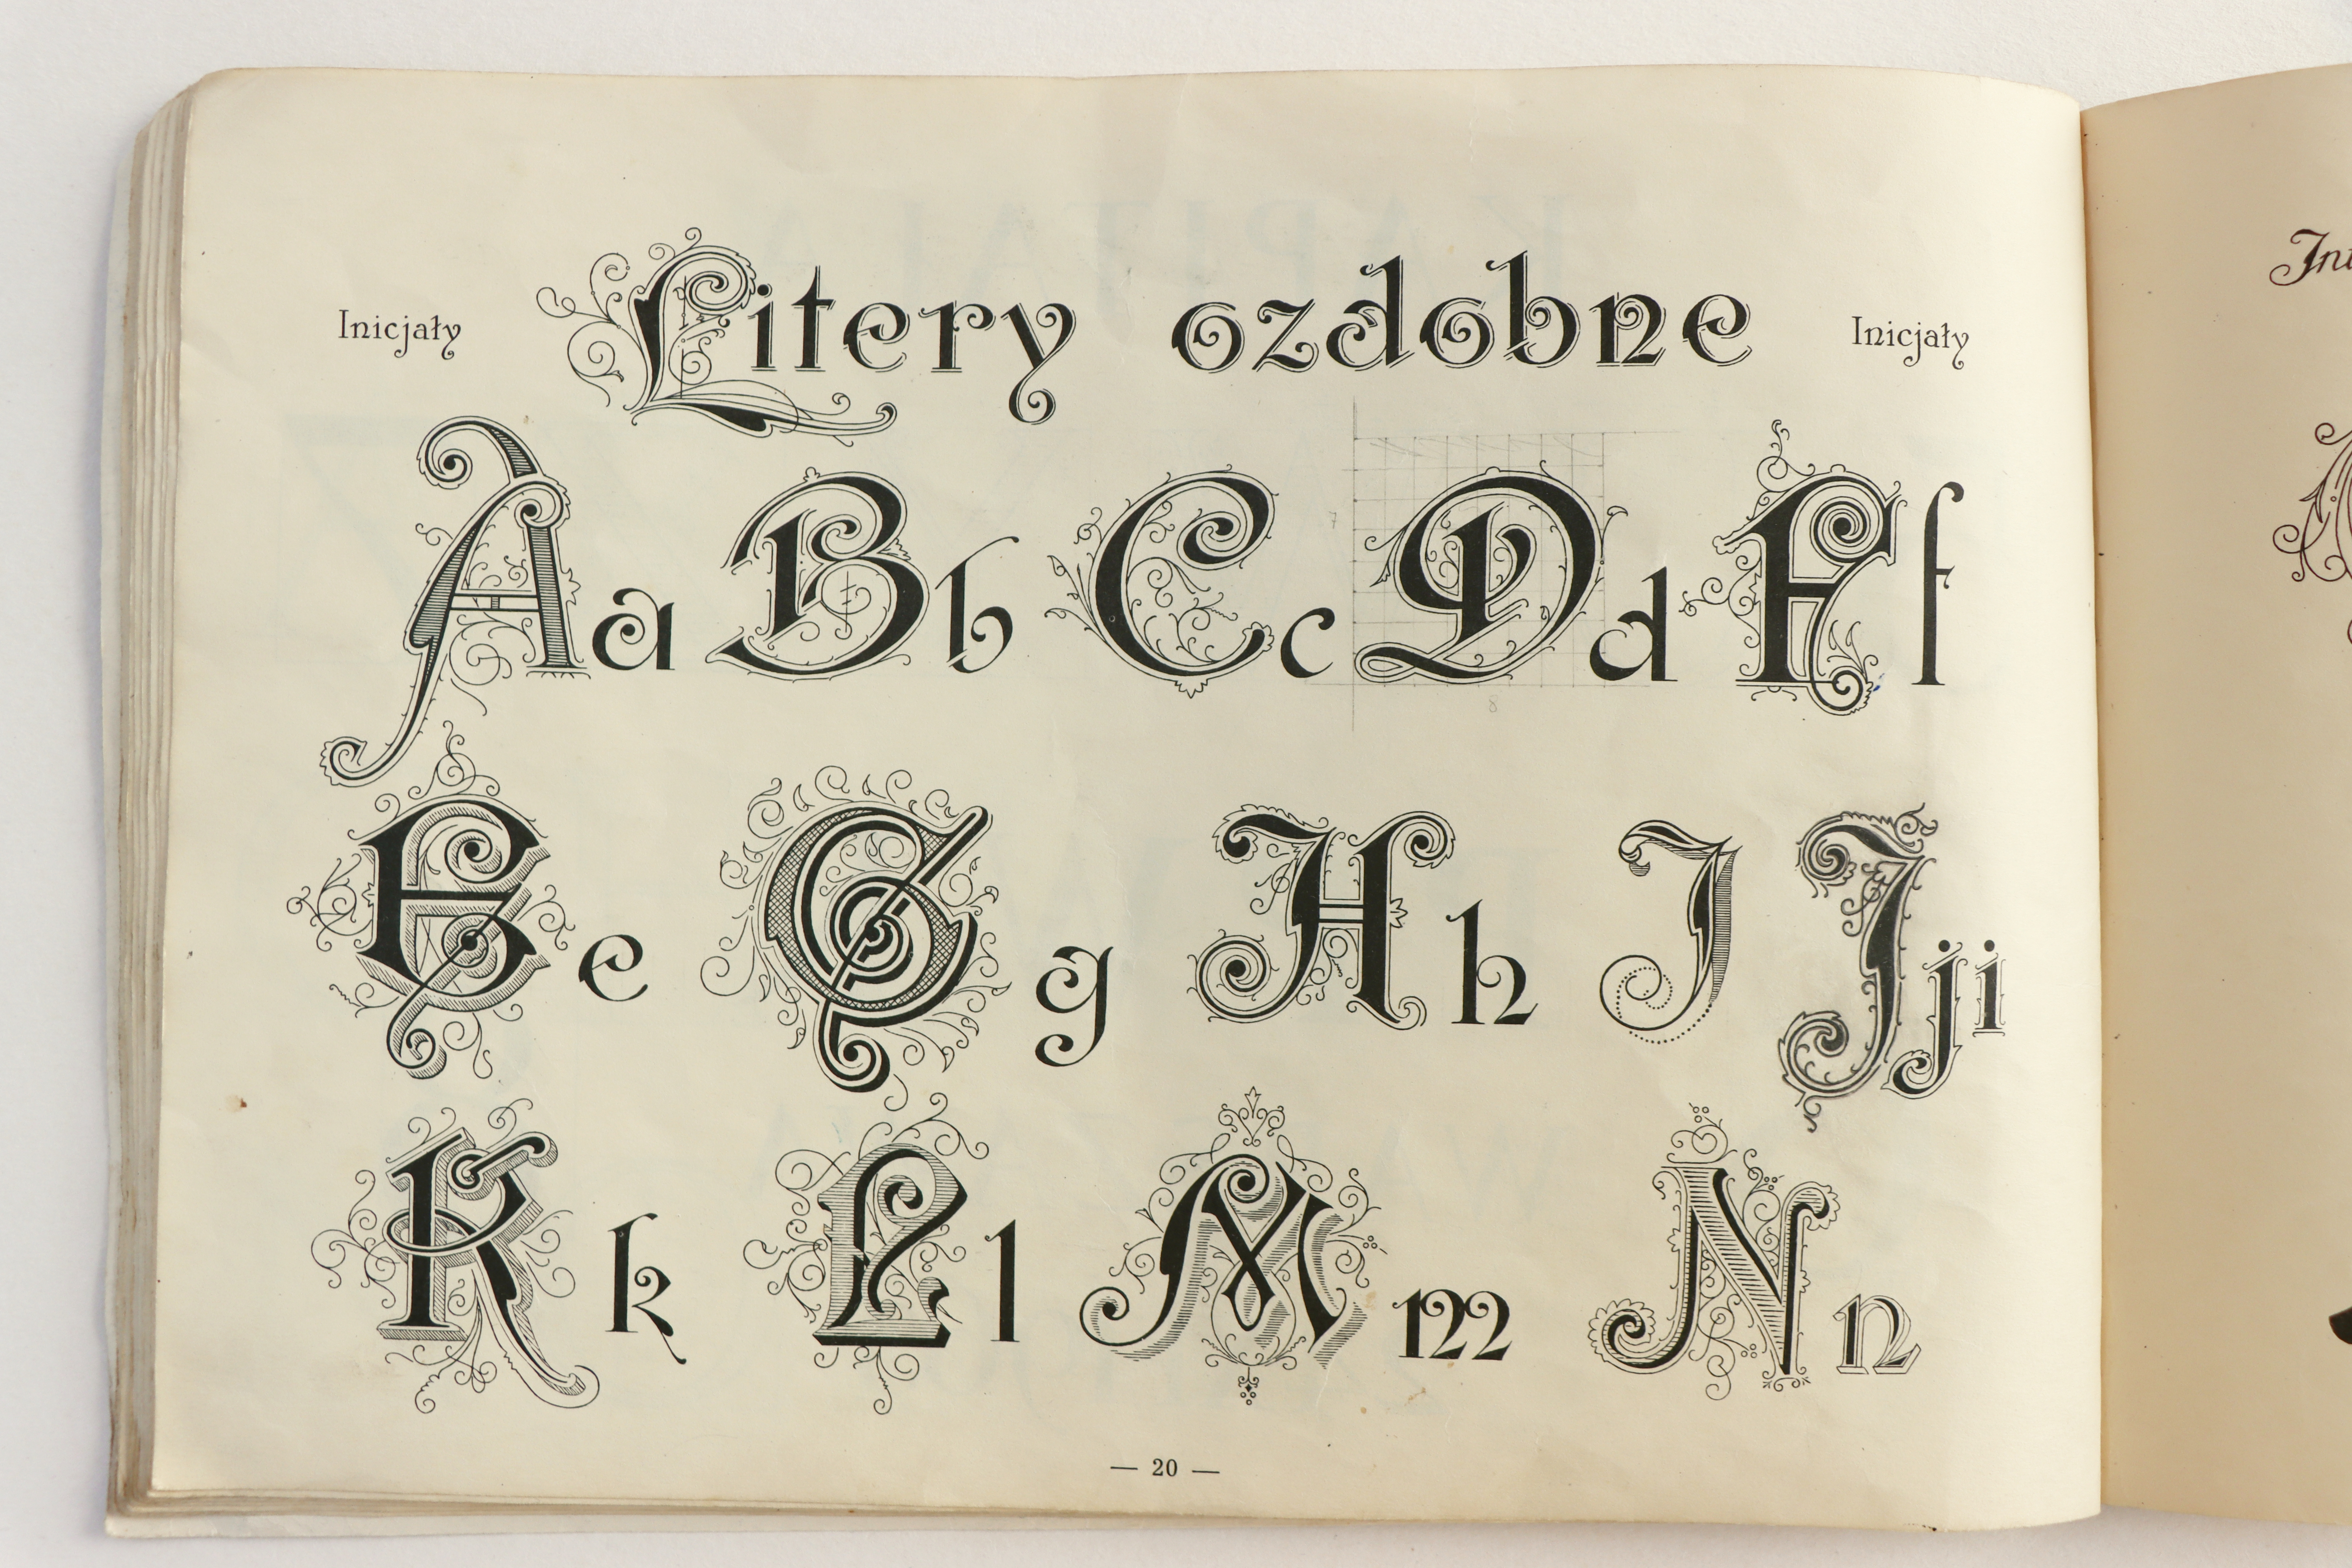 Inicjały Litery ozdobne Inicjały
Aa Bb Cc Dd Ff
Ee Gg Hh I Jji
Kk Ll Mm Nn
— 20 —